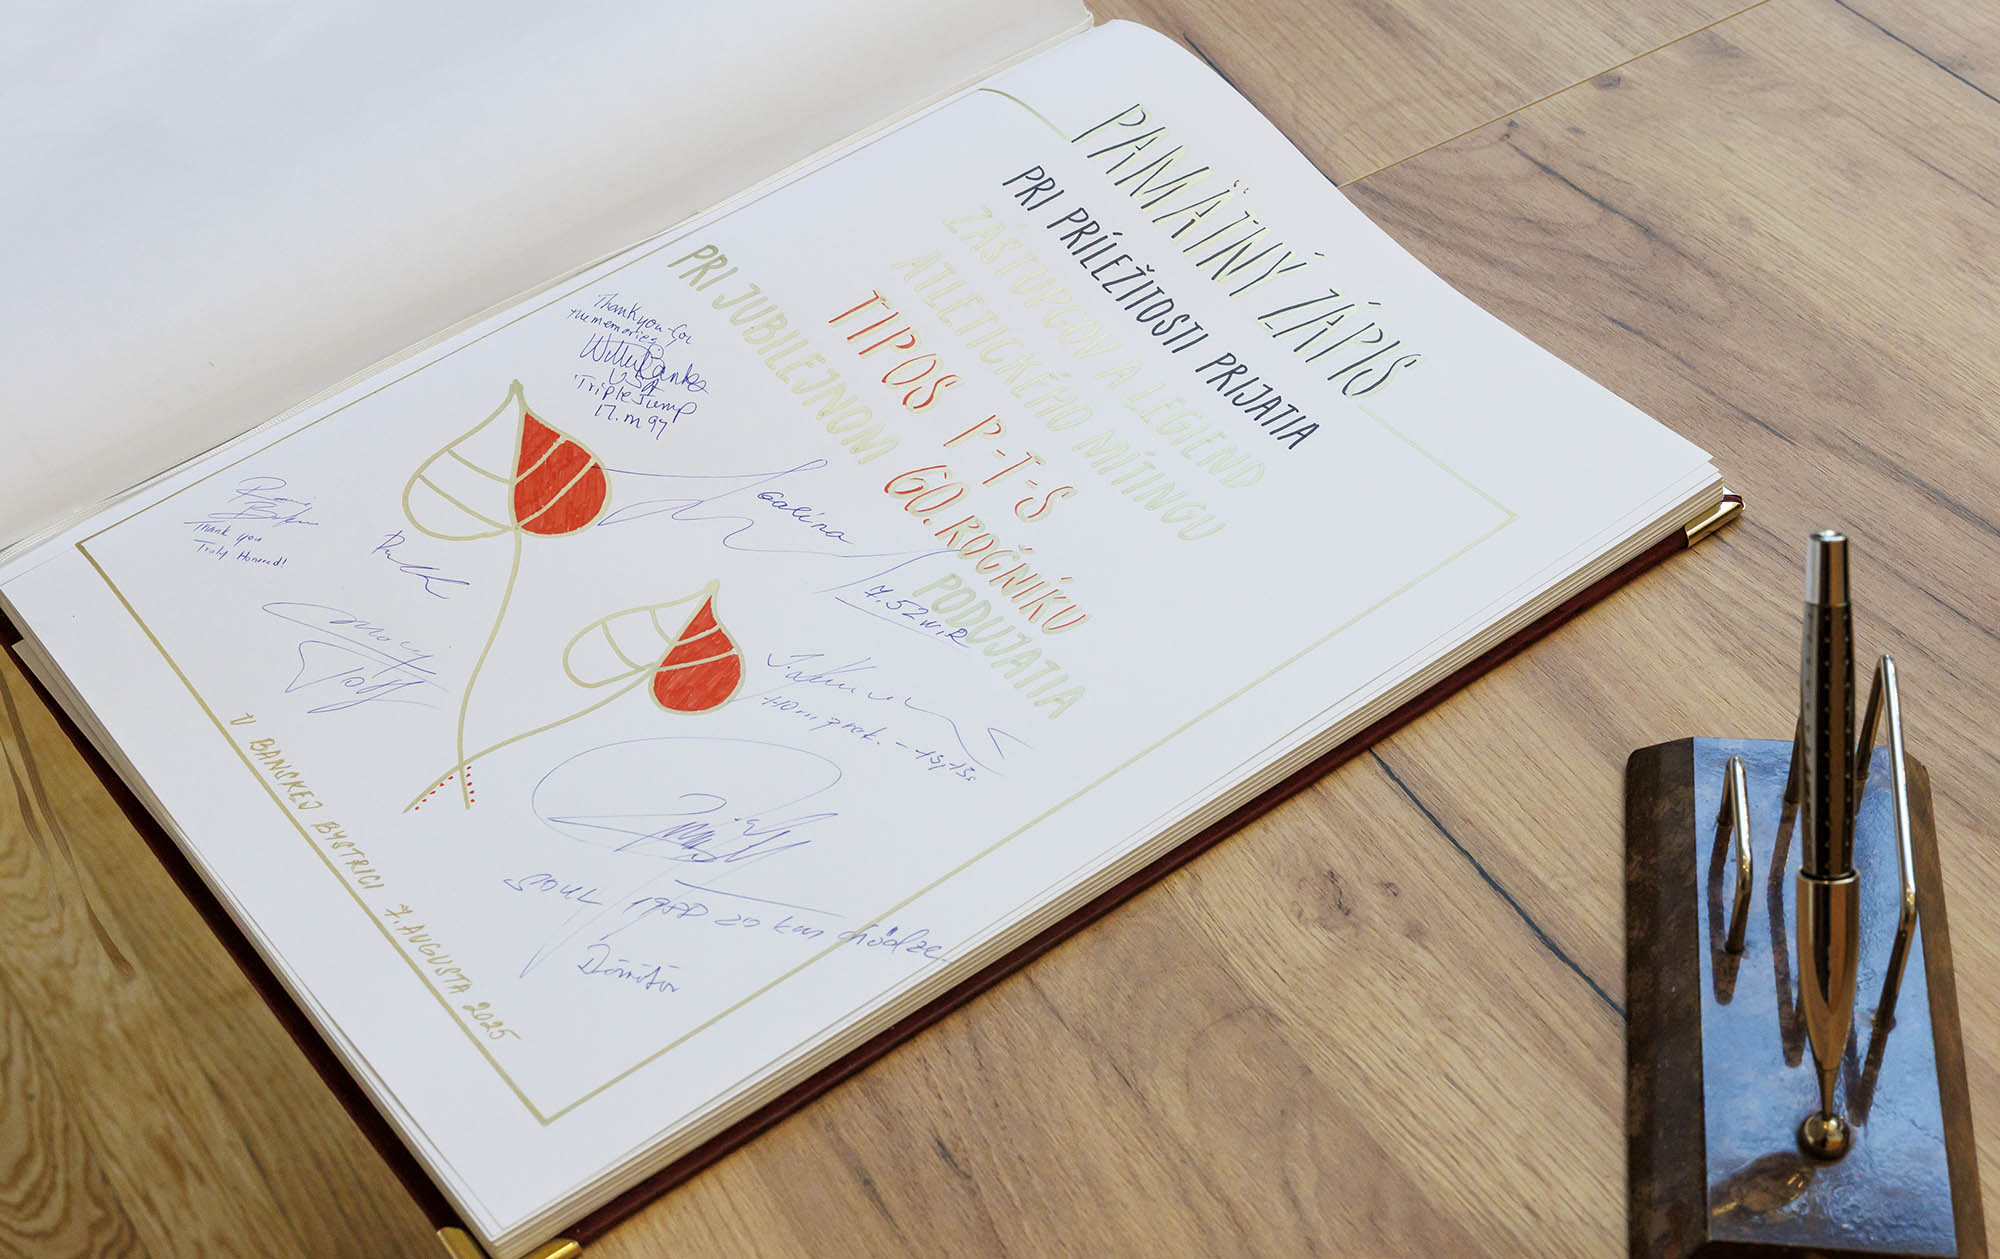 PAMÄTNÝ ZÁPIS
PRI PRÍLEŽITOSTI PRIJATIA
ZÁSTUPCOV A LEGIEND
ATLETICKÉHO MÍTINGU
TIPOS P-T-S
PRI JUBILEJNOM 60. ROČNÍKU
PODUJATIA
Thank you for
the memories
Willie Banks
USA
Triple Jump
17. m 97
Galina
7,52 W,R
Thank you
Truly Honored!
- 13,13s
SOUL 1988 20 km chôdze
V BANSKEJ BYSTRICI 7. AUGUSTA 2025